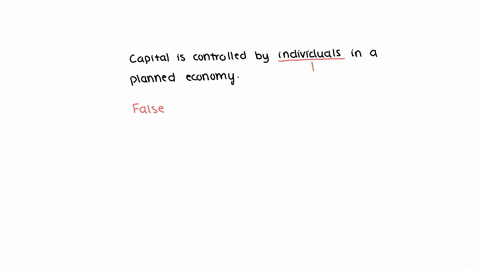 Capital is controlled by individuals in a
planned economy.
False